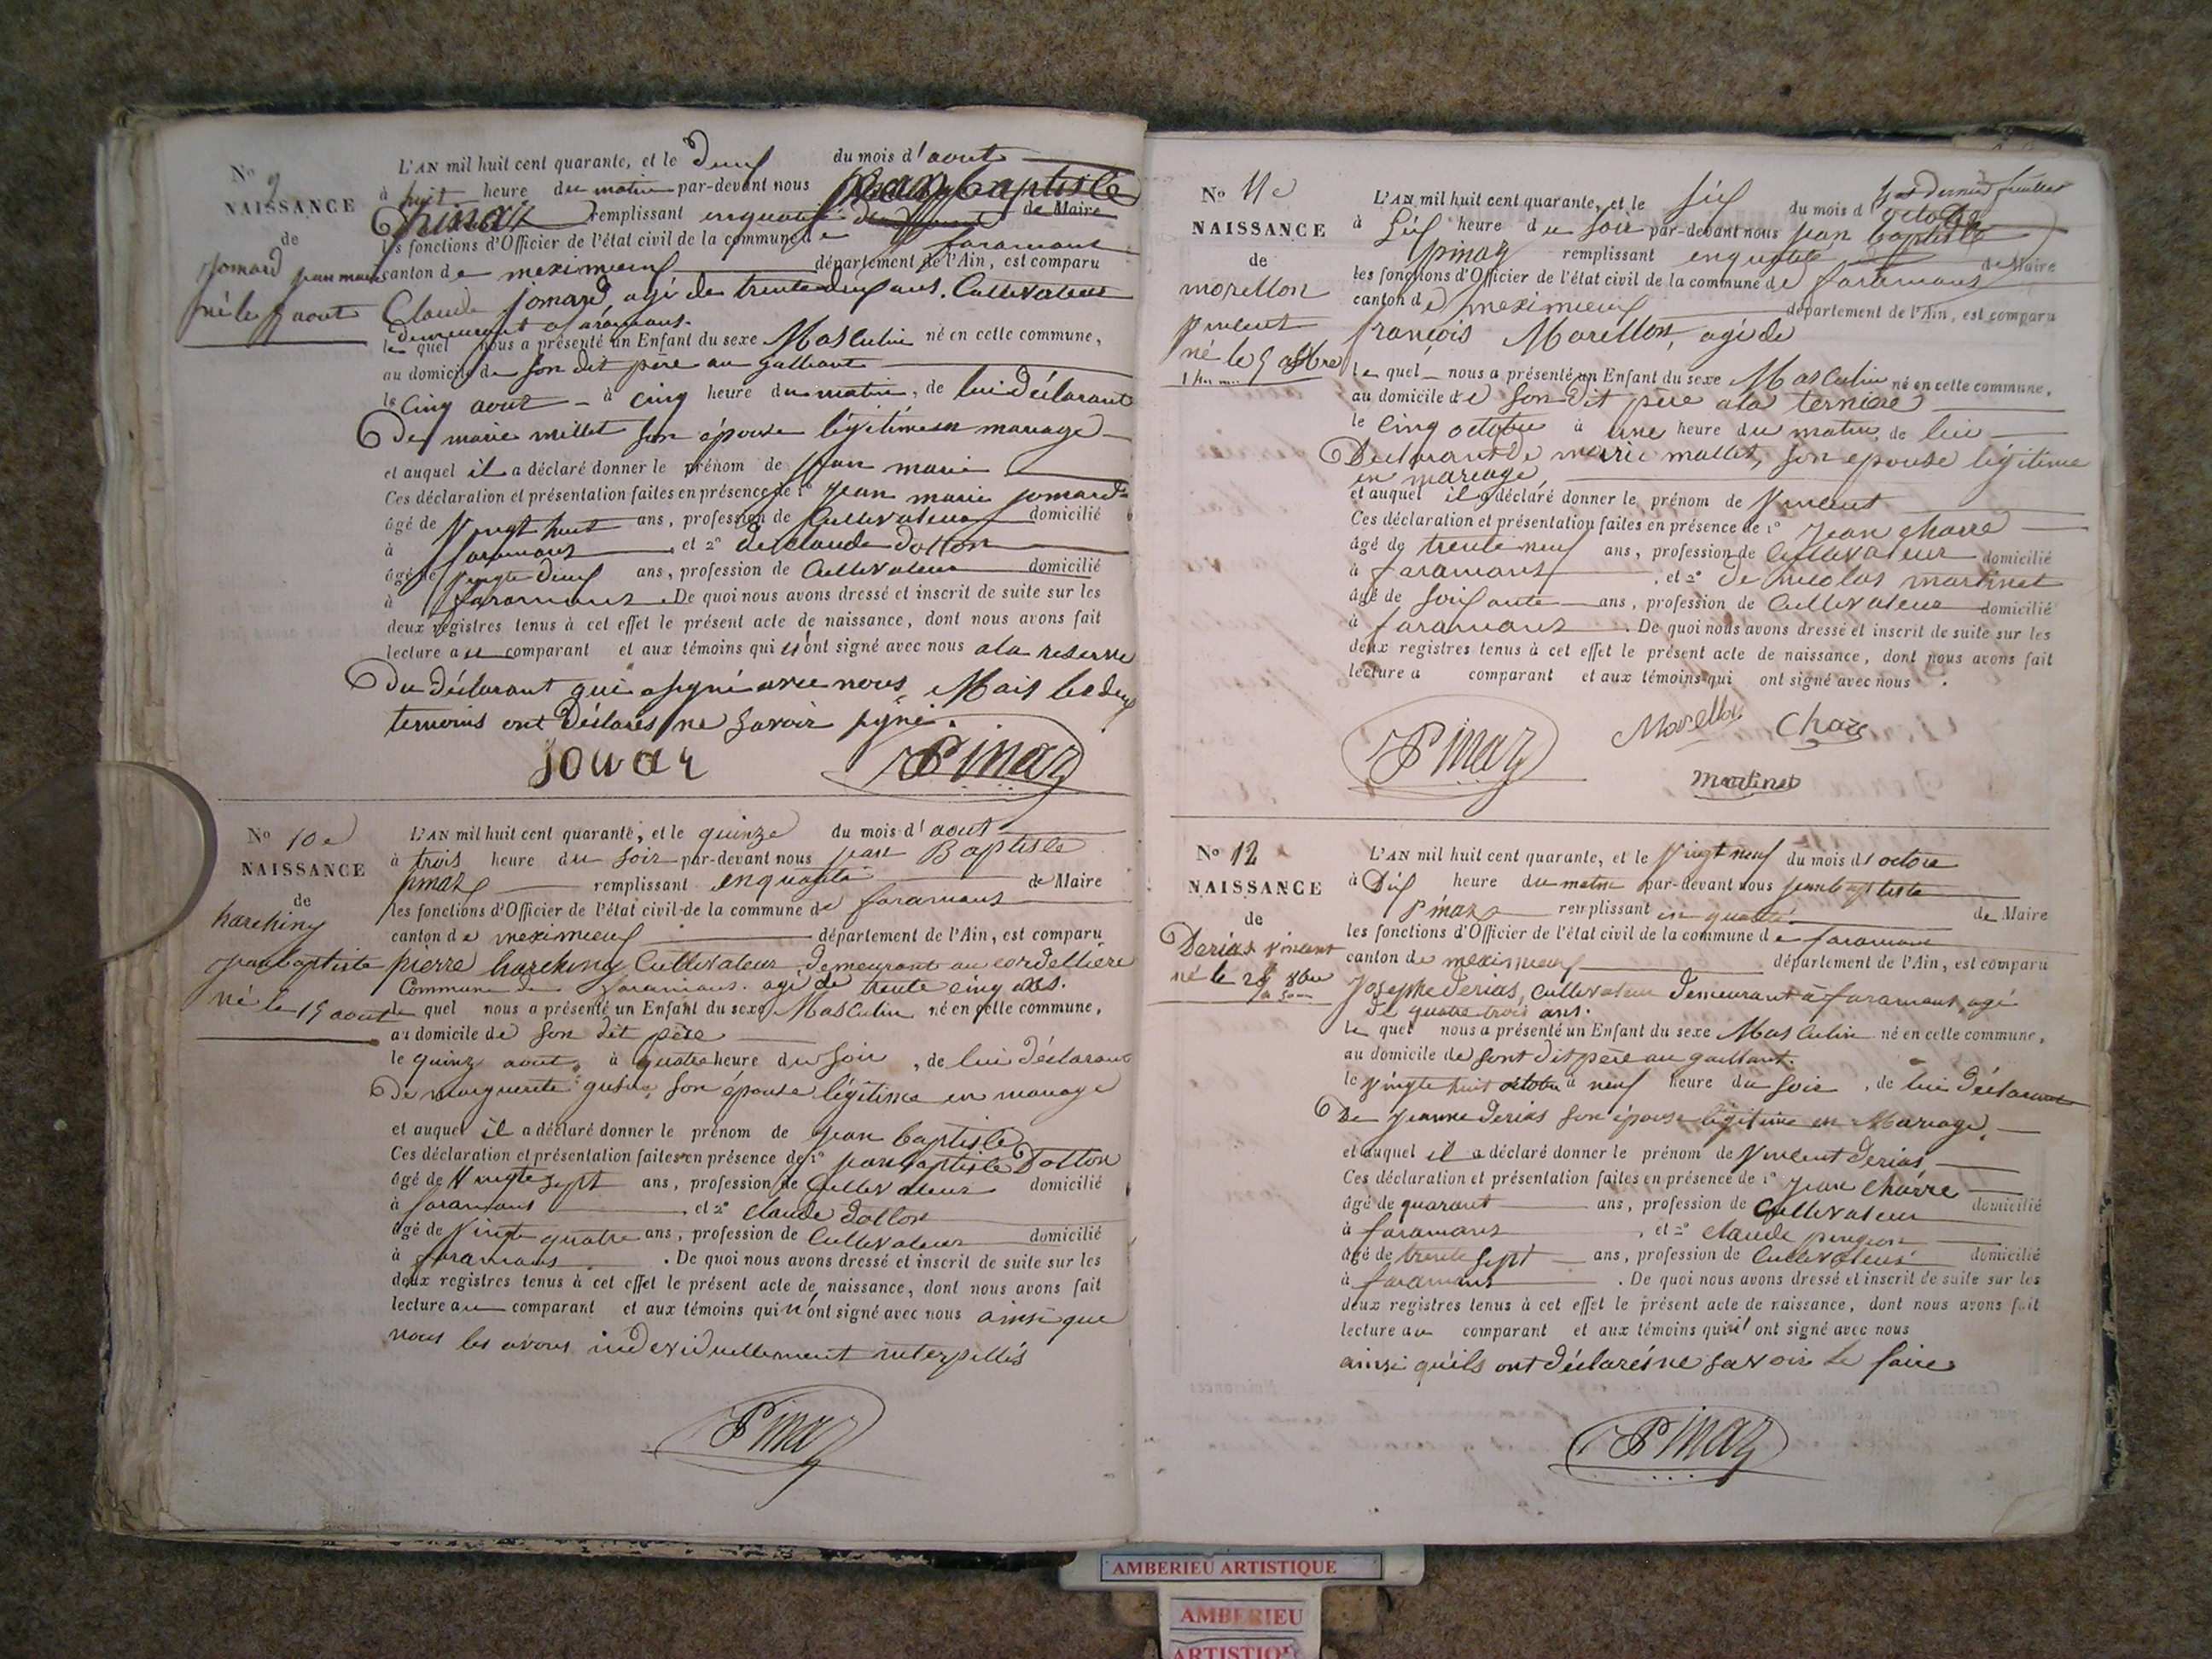 No 9
NAISSANCE
de
Jomard jean marie
né le 5 aout
L'AN mil huit cent quarante, et le du mois d'aout
à huit heure du matin par-devant nous jean baptiste
pinaz remplissant en qualité de Maire
les fonctions d'Officier de l'état civil de la commune de faramans
canton de meximieux département de l'Ain, est comparu
Claude jomard, agé de trente deux ans, Cultivateur
demeurant a faramans.
le quel nous a présenté un Enfant du sexe Masculin né en cette commune,
au domicile de son dit père au galliant
le Cinq aout à cinq heure du matin, de lui déclarant
De marie millet son épouse légitime en mariage
et auquel il a déclaré donner le prénom de jean marie
Ces déclaration et présentation faites en présence de 1° jean marie jomard
âgé de Vingt huit ans, profession de Cultivateur domicilié
à faramans, et 2° de claude dotton
âgé de Vingte deux ans, profession de Cultivateur domicilié
à faramans. De quoi nous avons dressé et inscrit de suite sur les
deux registres tenus à cet effet le présent acte de naissance, dont nous avons fait
lecture au comparant et aux témoins qui n'ont signé avec nous a la reserve
Du déclarant qui a signé avec nous, Mais les deux
temoins ont déclarés ne savoir signé.
jomar Pinaz
No 10e
NAISSANCE
de
harching
jean baptiste
né le 15 aout
L'AN mil huit cent quarante, et le quinze du mois d'aout
à trois heure du soir par-devant nous jean Baptiste
pinaz remplissant en qualité de Maire
les fonctions d'Officier de l'état civil de la commune de faramans
canton de meximieux département de l'Ain, est comparu
pierre harching Cultivateur demeurant au cordellière
Commune de faramans. agé de trente cinq ans.
le quel nous a présenté un Enfant du sexe Masculin né en cette commune,
au domicile de son dit père
le quinz aout, à quatre heure du soir, de lui déclarant
De marguerite son épouse légitime en mariage
et auquel il a déclaré donner le prénom de jean baptiste
Ces déclaration et présentation faites en présence de 1° jean baptiste Dotton
âgé de Vingte sept ans, profession de Cultivateur domicilié
à faramans, et 2° claude dotton
âgé de Vingt quatre ans, profession de Cultivateur domicilié
à faramans. De quoi nous avons dressé et inscrit de suite sur les
deux registres tenus à cet effet le présent acte de naissance, dont nous avons fait
lecture au comparant et aux témoins qui n'ont signé avec nous ainsi que
nous les avons individuellement interpellés
Pinaz
No 11e
NAISSANCE
de
morellon
Vincent
né le 5 8bre
L'AN mil huit cent quarante, et le six du mois d'octobre
à six heure du soir par-devant nous jean baptiste
pinaz remplissant en qualité de Maire
les fonctions d'Officier de l'état civil de la commune de faramans
canton de meximieux département de l'Ain, est comparu
françois Morellon, agé de
le quel nous a présenté un Enfant du sexe Masculin né en cette commune,
au domicile de son dit père a la
le cinq octobre à une heure du matin, de lui
Déclarant De marie mallet, son épouse légitime
en mariage
et auquel il a déclaré donner le prénom de Vincent
Ces déclaration et présentation faites en présence de 1° Jean charre
âgé de trente neuf ans, profession de Cultivateur domicilié
à faramans, et 2° De nicolas martinet
âgé de soixante ans, profession de Cultivateur domicilié
à faramans. De quoi nous avons dressé et inscrit de suite sur les
deux registres tenus à cet effet le présent acte de naissance, dont nous avons fait
lecture a comparant et aux témoins qui ont signé avec nous.
Pinaz Morellon Chare
martinet
No 12
NAISSANCE
de
Derias Vincent
né le 28 8bre
L'AN mil huit cent quarante, et le Vingt neuf du mois d'octobre
à Dix heure du matin par-devant nous jean baptiste
Pinaz remplissant en qualité de Maire
les fonctions d'Officier de l'état civil de la commune de faramans
canton de meximieux département de l'Ain, est comparu
Josephe derias, cultivateur demeurant à faramans, agé
de quatre trois ans.
le quel nous a présenté un Enfant du sexe Masculin né en cette commune,
au domicile de sont dit père au gaillant.
le vingte huit octobre à neuf heure du soir, de lui déclarant
De jeanne derias son épouse légitime en Mariage,
et auquel il a déclaré donner le prénom de Vincent derias,
Ces déclaration et présentation faites en présence de 1° jean charre
âgé de quarant ans, profession de Cultivateur domicilié
à faramans, et 2° claude
âgé de trente sept ans, profession de Cultivateur domicilié
à faramans. De quoi nous avons dressé et inscrit de suite sur les
deux registres tenus à cet effet le présent acte de naissance, dont nous avons fait
lecture au comparant et aux témoins qui n'ont signé avec nous
ainsi qu'ils ont déclarés ne savoir le faire
Pinaz
AMBERIEU ARTISTIQUE
AMBERIEU
ARTISTIQUE